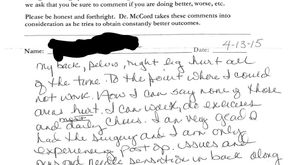 we ask that you be sure to comment if you are doing better, worse, etc.
Please be honest and forthright. Dr. McCord takes these comments into
consideration as he tries to obtain constantly better outcomes.
Name: 4-13-15
my back, pelvis, right leg hurt all
of the time. To the point where I could
not work. Now I can say none of those
areas hurt. I can walk, do exercises
and most daily chores. I am very glad I
had the surgery and I am only
experiencing Post Op. issues and
needle sensation in back along